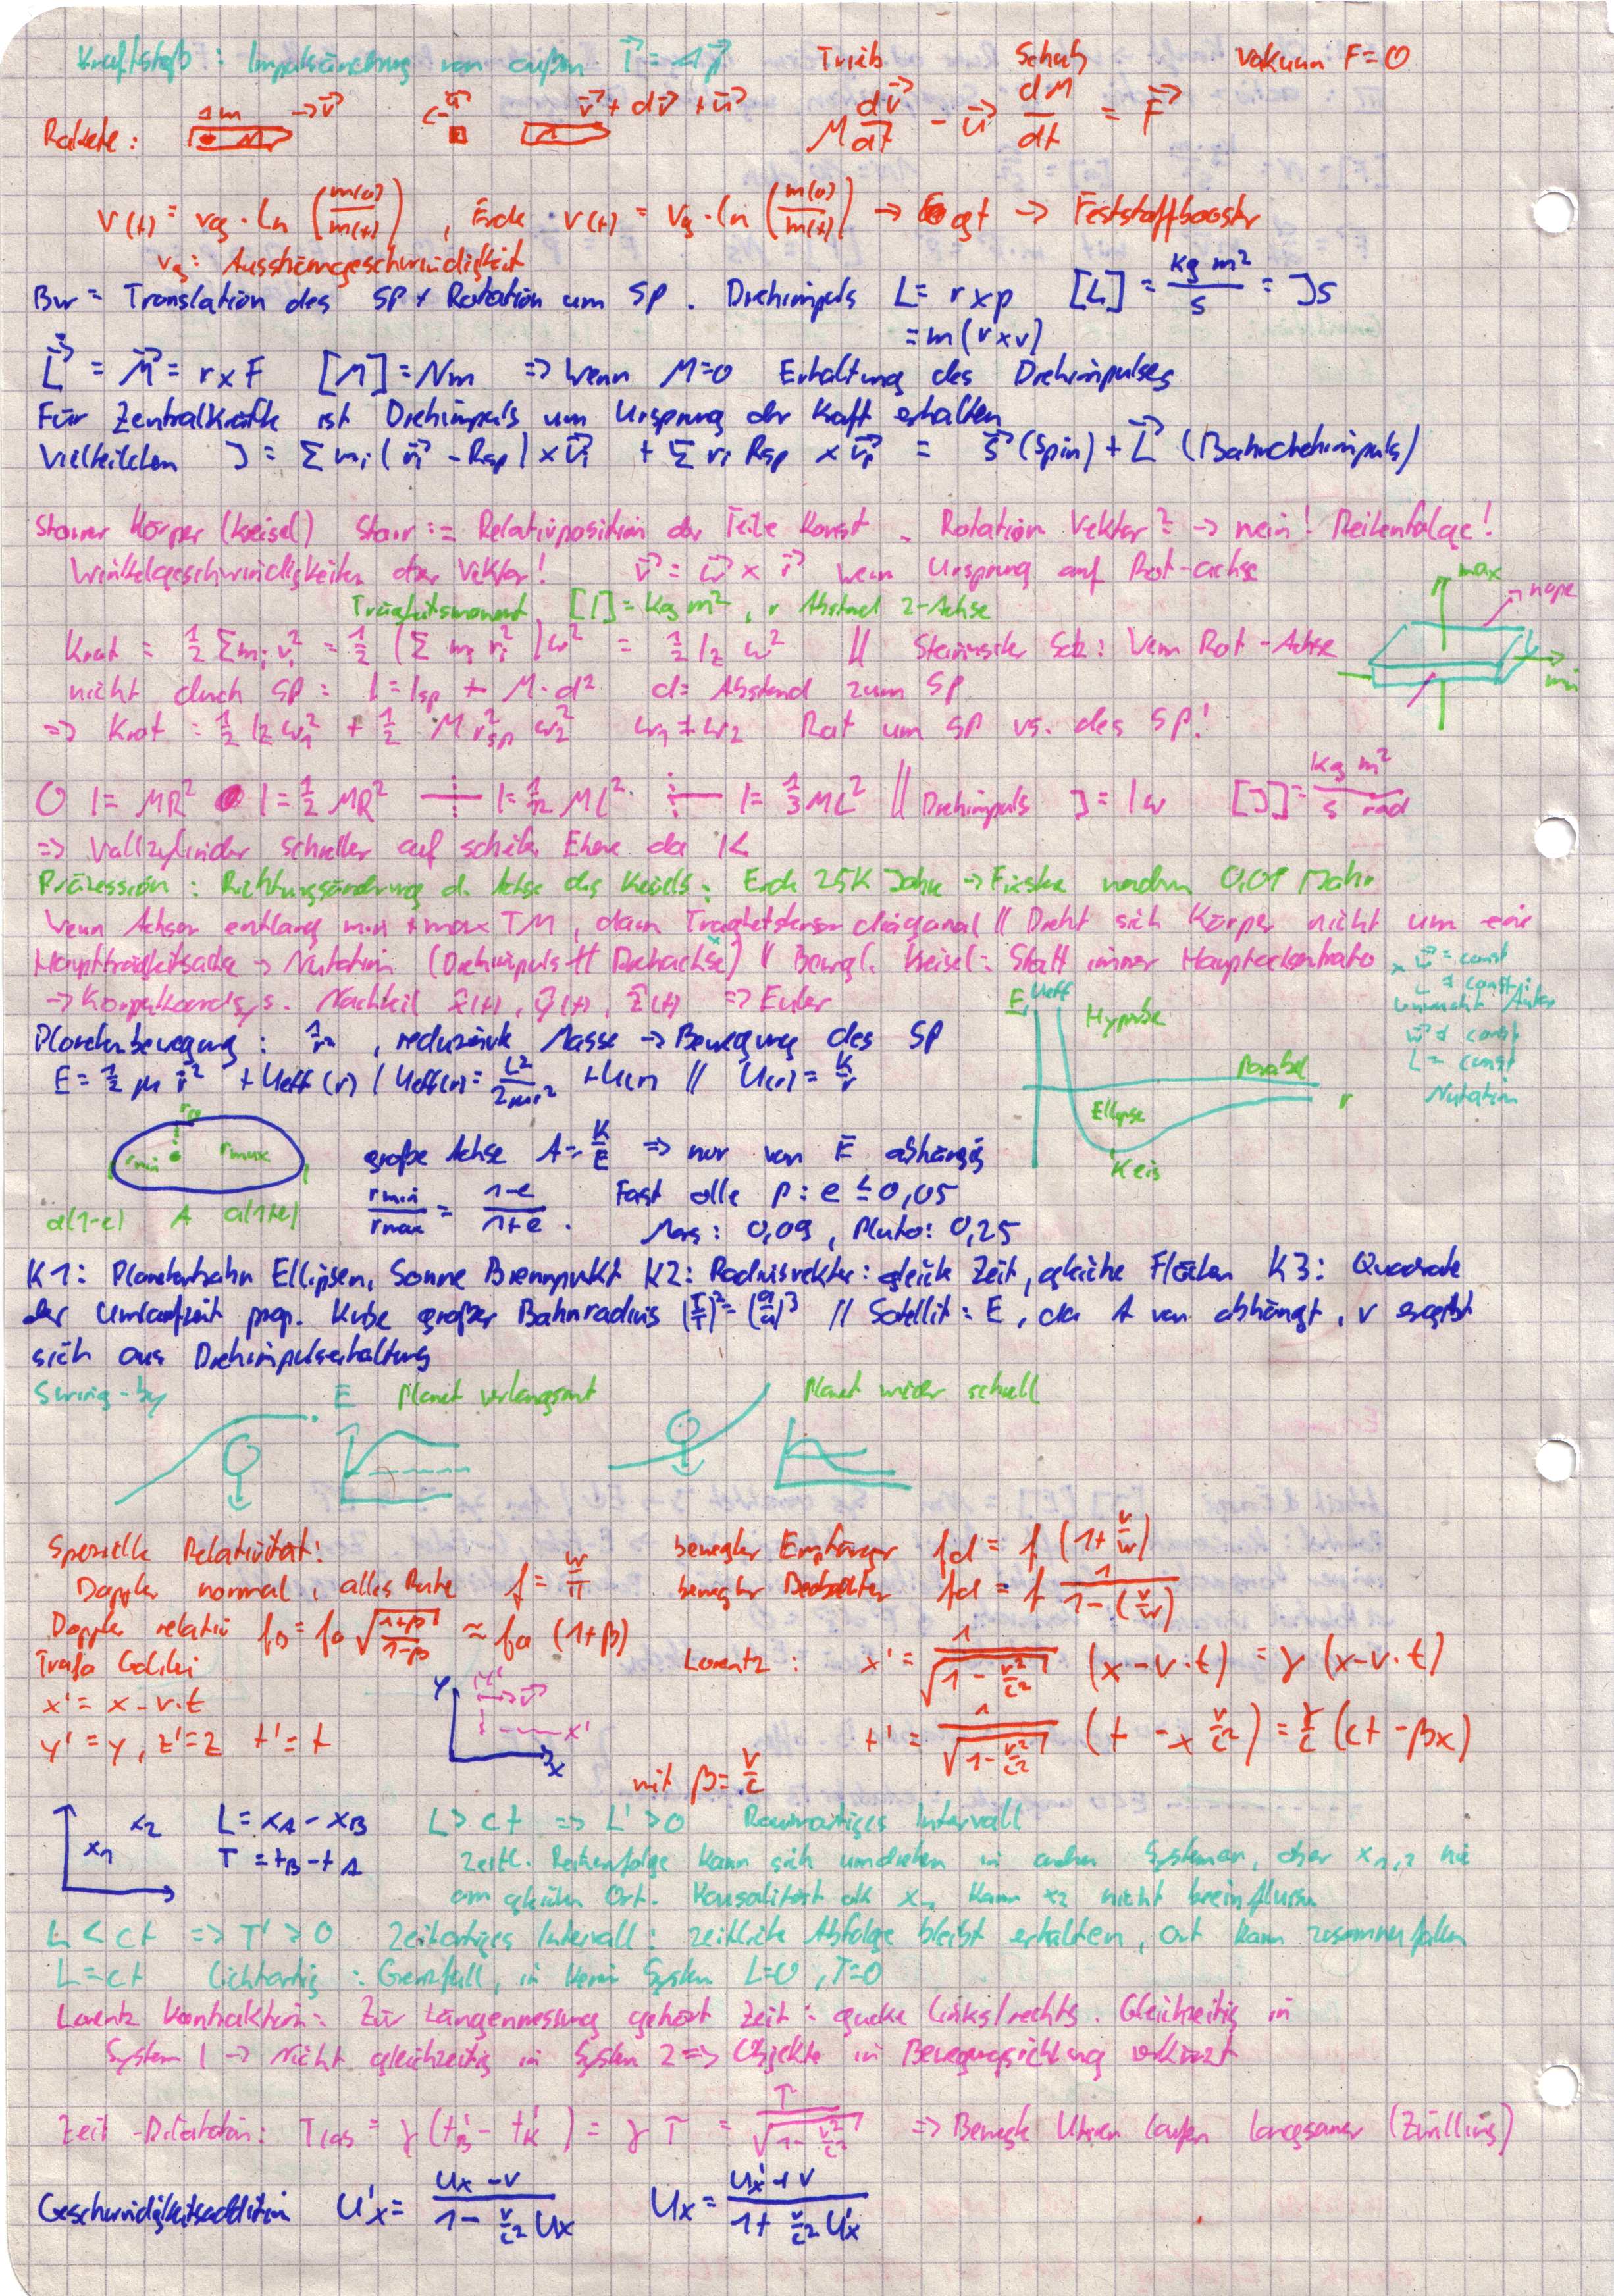 Kraftstoß : Impulsänderung von außen I⃗ = Δp⃗ Trieb Schub Vakuum F=0
Rakete: Δm →v⃗ M u⃗ v⃗ + dv⃗ + u⃗ M dv⃗/dt - u⃗ dM/dt = F⃗
v(t) = vg · ln (m(0)/m(t)) , Erde v(t) = vg · ln (m(0)/m(t)) → gt → Feststoffbooster
vg: Ausströmgeschwindigkeit
Bw = Translation des SP + Rotation um SP. Drehimpuls L = r × p [L] = kg m²/s = Js
= m(r×v)
L⃗̇ = M⃗ = r × F [M] = Nm => Wenn M=0 Erhaltung des Drehimpulses
Für Zentralkräfte ist Drehimpuls um Ursprung der Kraft erhalten
Vielteilchen J = Σ mi (r⃗i - Rsp) × v⃗i + Σ ri Rsp × v⃗i = S⃗ (Spin) + L⃗ (Bahndrehimpuls)
Starrer Körper (Kreisel) Starr := Relativposition der Teile konst. Rotation Vektor? → nein! Reihenfolge!
Winkelgeschwindigkeiten aber Vektor! v⃗ = ω⃗ × r⃗ wenn Ursprung auf Rot-achse
Trägheitsmoment [I] = kg m², r Abstand z-Achse
max nope
Krot = 1/2 Σ mi vi² = 1/2 (Σ mi ri²) ω² = 1/2 Iz ω² // Steinerscher Satz: Wenn Rot-Achse
min
nicht durch SP: I = Isp + M·d² d= Abstand zum SP
=> Krot = 1/2 Iz ω1² + 1/2 M rsp² ω2² ω1 ≠ ω2 Rot um SP vs. des SP!
O I = MR² ● I = 1/2 MR² I = 1/12 ML² I = 1/3 ML² // Drehimpuls J = Iω [J] = kg m²/s rad
=> Vollzylinder schneller auf schiefer Ebene da I<
Präzession: Richtungsänderung d. Achse des Kreisels. Erde 25K Jahre → Fixsterne 0,01 /Jahr
Wenn Achsen entlang min + max TM, dann Trägheitstensor diagonal // Dreht sich Körper nicht um eine
Hauptträgheitsachse → Nutation (Drehimpuls ∦ Drehachse) // Bewegl. Kreisel: Statt immer
x ω⃗ = const
L ≠ const
→ Körperkoordsys. Nachteil x̂(t), ŷ(t), ẑ(t) => Euler
E, Ueff Hyperbel
ω⃗ ≠ const
L = const
Nutation
Planetenbewegung: 1/r² , reduzierte Masse → Bewegung des SP
E = 1/2 μ ṙ² + Ueff (r) / Ueff(r) = L²/2μr² + U(r) // U(r) = k/r
Parabel
r
Ellipse
Kreis
rmin rmax
große Achse A = K/E => nur von E abhängig
rmin/rmax = 1-e/1+e . Fast alle P: e ≤ 0,05
a(1-e) A a(1+e)
Mars: 0,09 , Pluto: 0,25
K1: Planetenbahn Ellipsen, Sonne Brennpunkt K2: Radiusvektor: gleiche Zeit, gleiche Flächen K3: Quadrate
der Umlaufzeit prop. Kube großer Bahnradius (T/T)² = (a/a)³ // Satellit: E, da A von abhängt, v ergibt
sich aus Drehimpulserhaltung
Swing-by E Planet verlangsamt Planet wieder schnell
Spezielle Relativität:
Doppler normal, alles Ruhe f = w/λ
bewegter Empfänger fd = f (1 + v/w)
bewegter Beobachter fd = f 1/1-(v/w)
Doppler relativ fB = f0 √(1+β/1-β) ≈ f0 (1+β)
Trafo Galilei
x' = x - v·t
y' = y, z' = z t' = t
y y' → v⃗ x' x
Lorentz: x' = 1/√(1 - v²/c²) (x - v·t) = γ (x - v·t)
t' = 1/√(1 - v²/c²) (t - x v/c²) = γ/c (ct - βx)
mit β = v/c
x1 x2
L = xA - xB
T = tB - tA
L > ct => L' > 0 Raumartiges Intervall
zeitl. Reihenfolge kann sich umdrehen in andren Systemen, aber x1,2 nie
am gleichen Ort. Kausalität dh x1 kann x2 nicht beeinflussen
L < ct => T' > 0 Zeitartiges Intervall: zeitliche Abfolge bleibt erhalten, Ort kann zusammenfallen
L = ct lichtartig: Grenzfall, in keinem System L=0, T=0
Lorentz Kontraktion: Zur Längenmessung gehört Zeit: gucke links/rechts. Gleichzeitig in
System 1 → Nicht gleichzeitig in System 2 => Objekte in Bewegungsrichtung verkürzt
Zeit-Dilatation: T = γ (t'B - t'A) = γ T = T/√(1 - v²/c²) => Bewegte Uhren laufen langsamer (Zwilling)
Geschwindigkeitsaddition U'x = Ux - v / 1 - v/c² Ux Ux = U'x + v / 1 + v/c² U'x